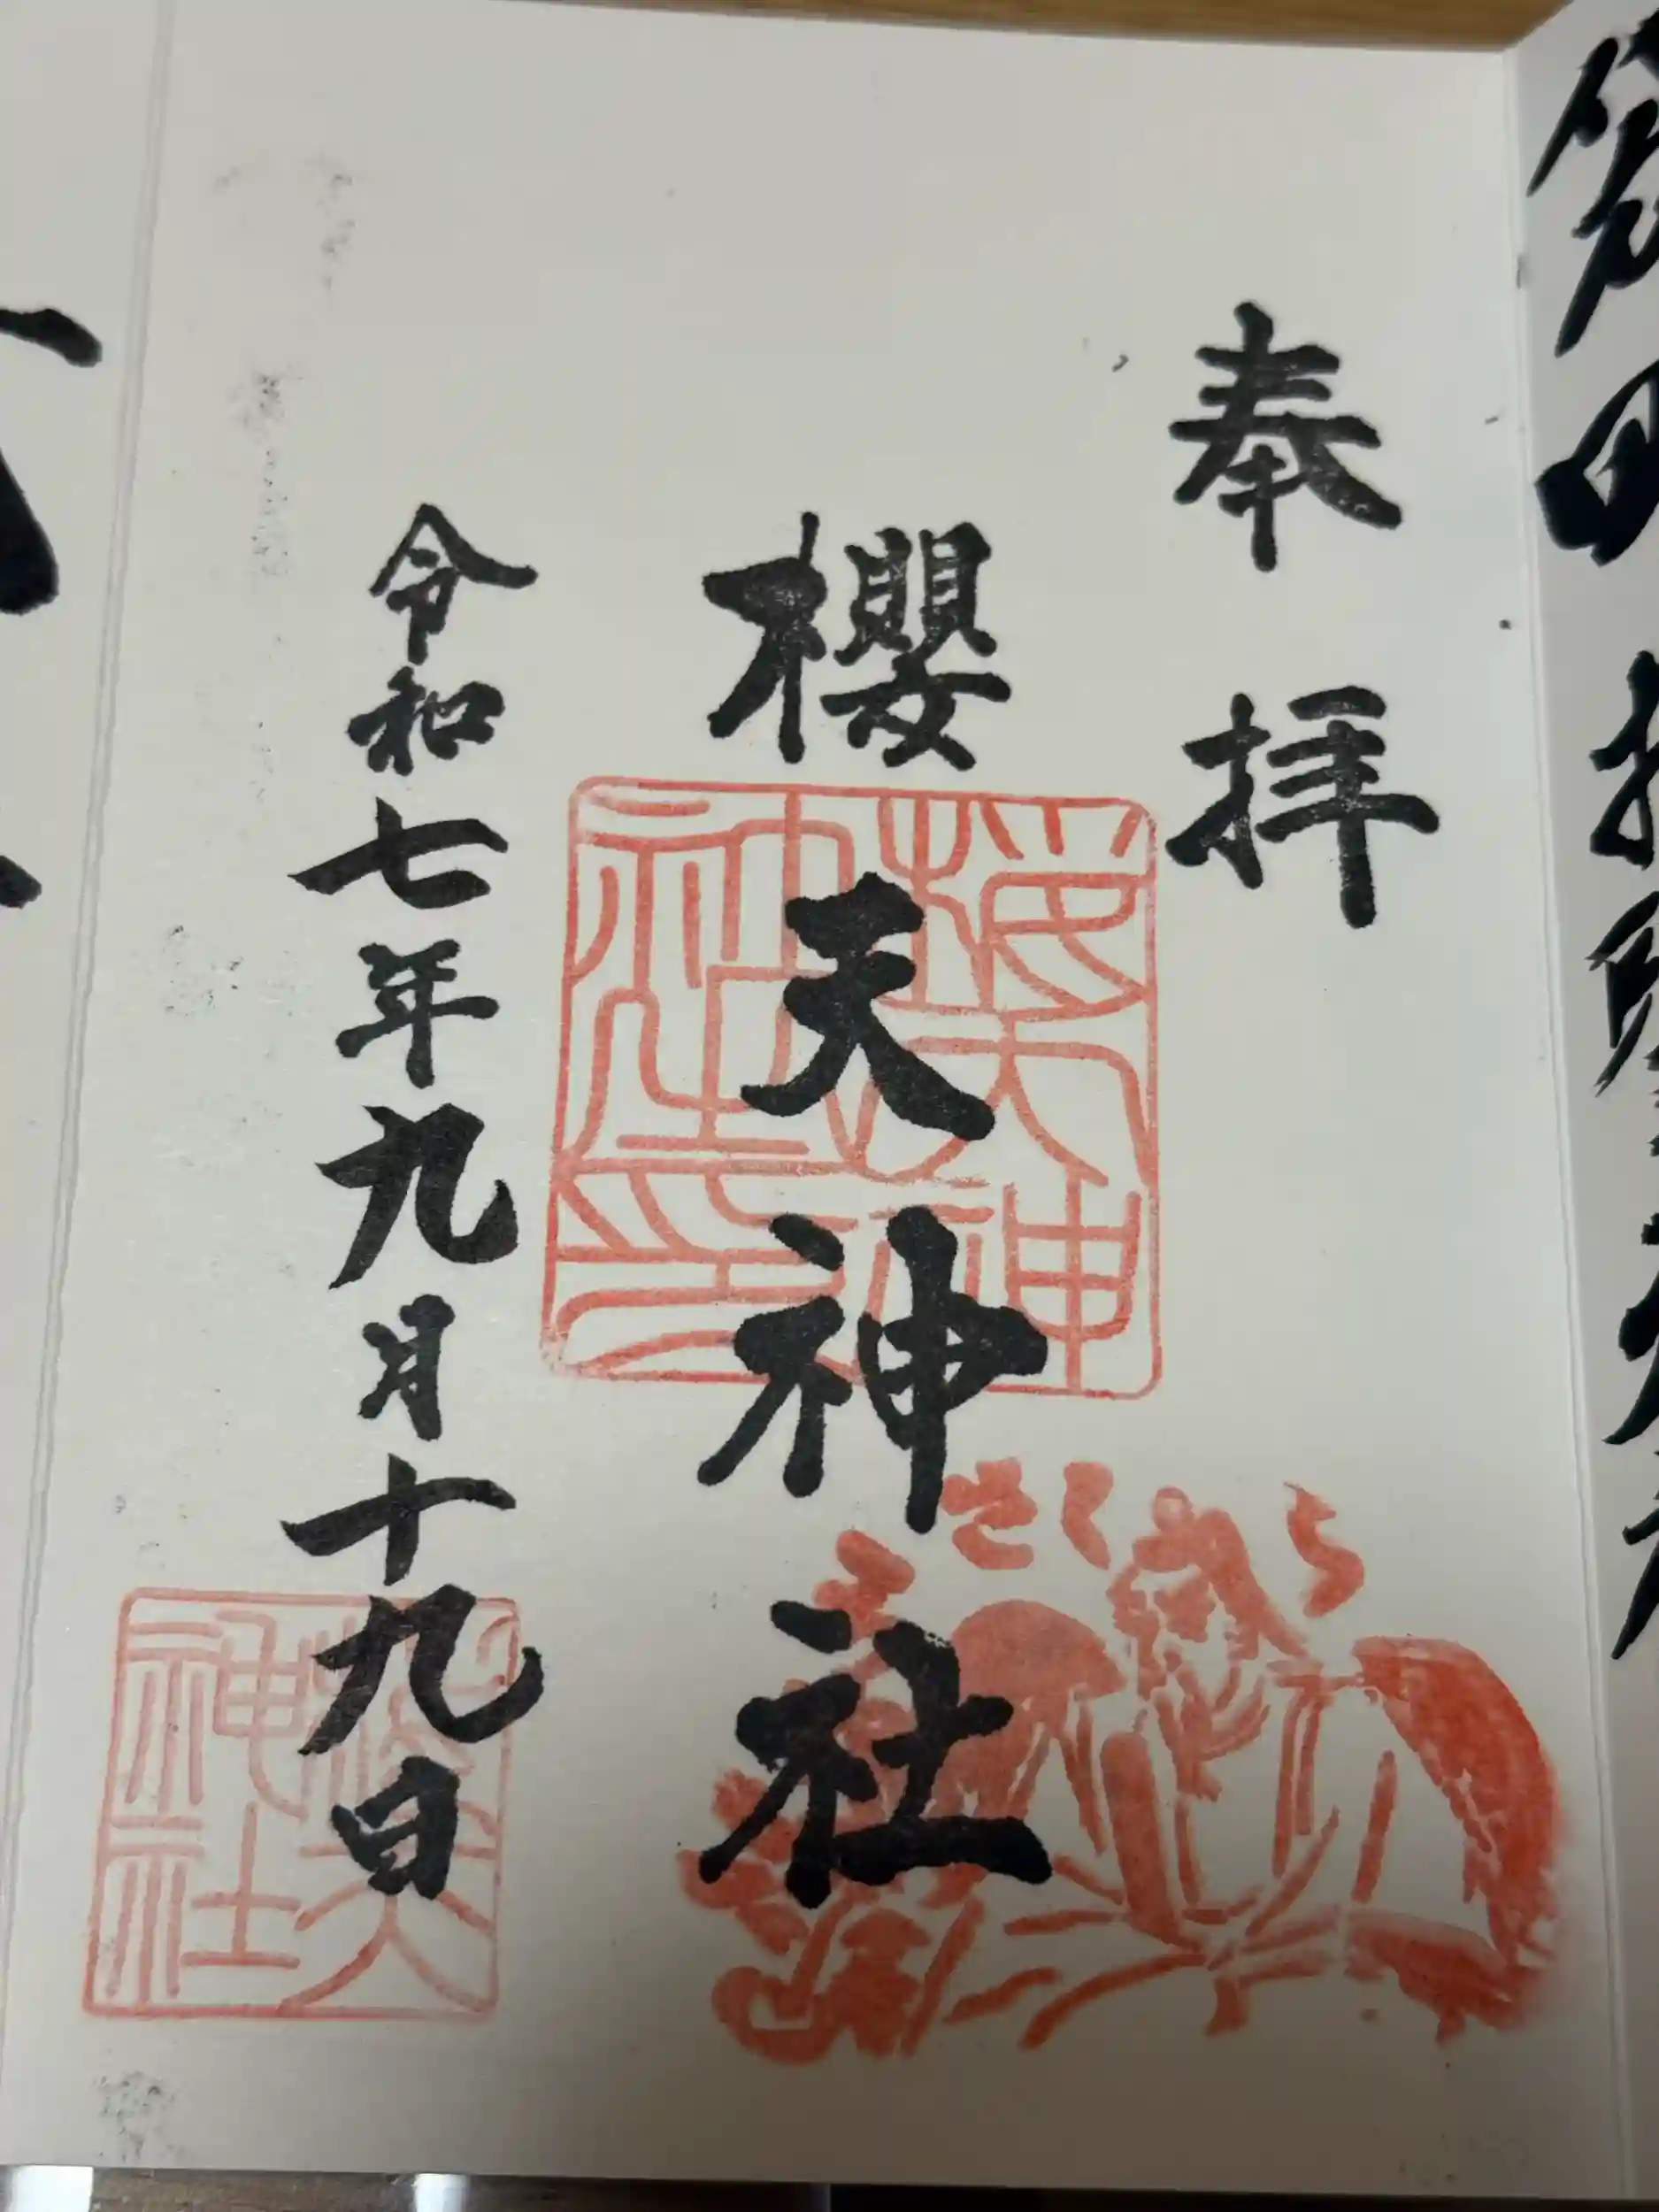 奉拝
櫻天神社
櫻天神社印
さくら
令和七年九月十九日
櫻天神社